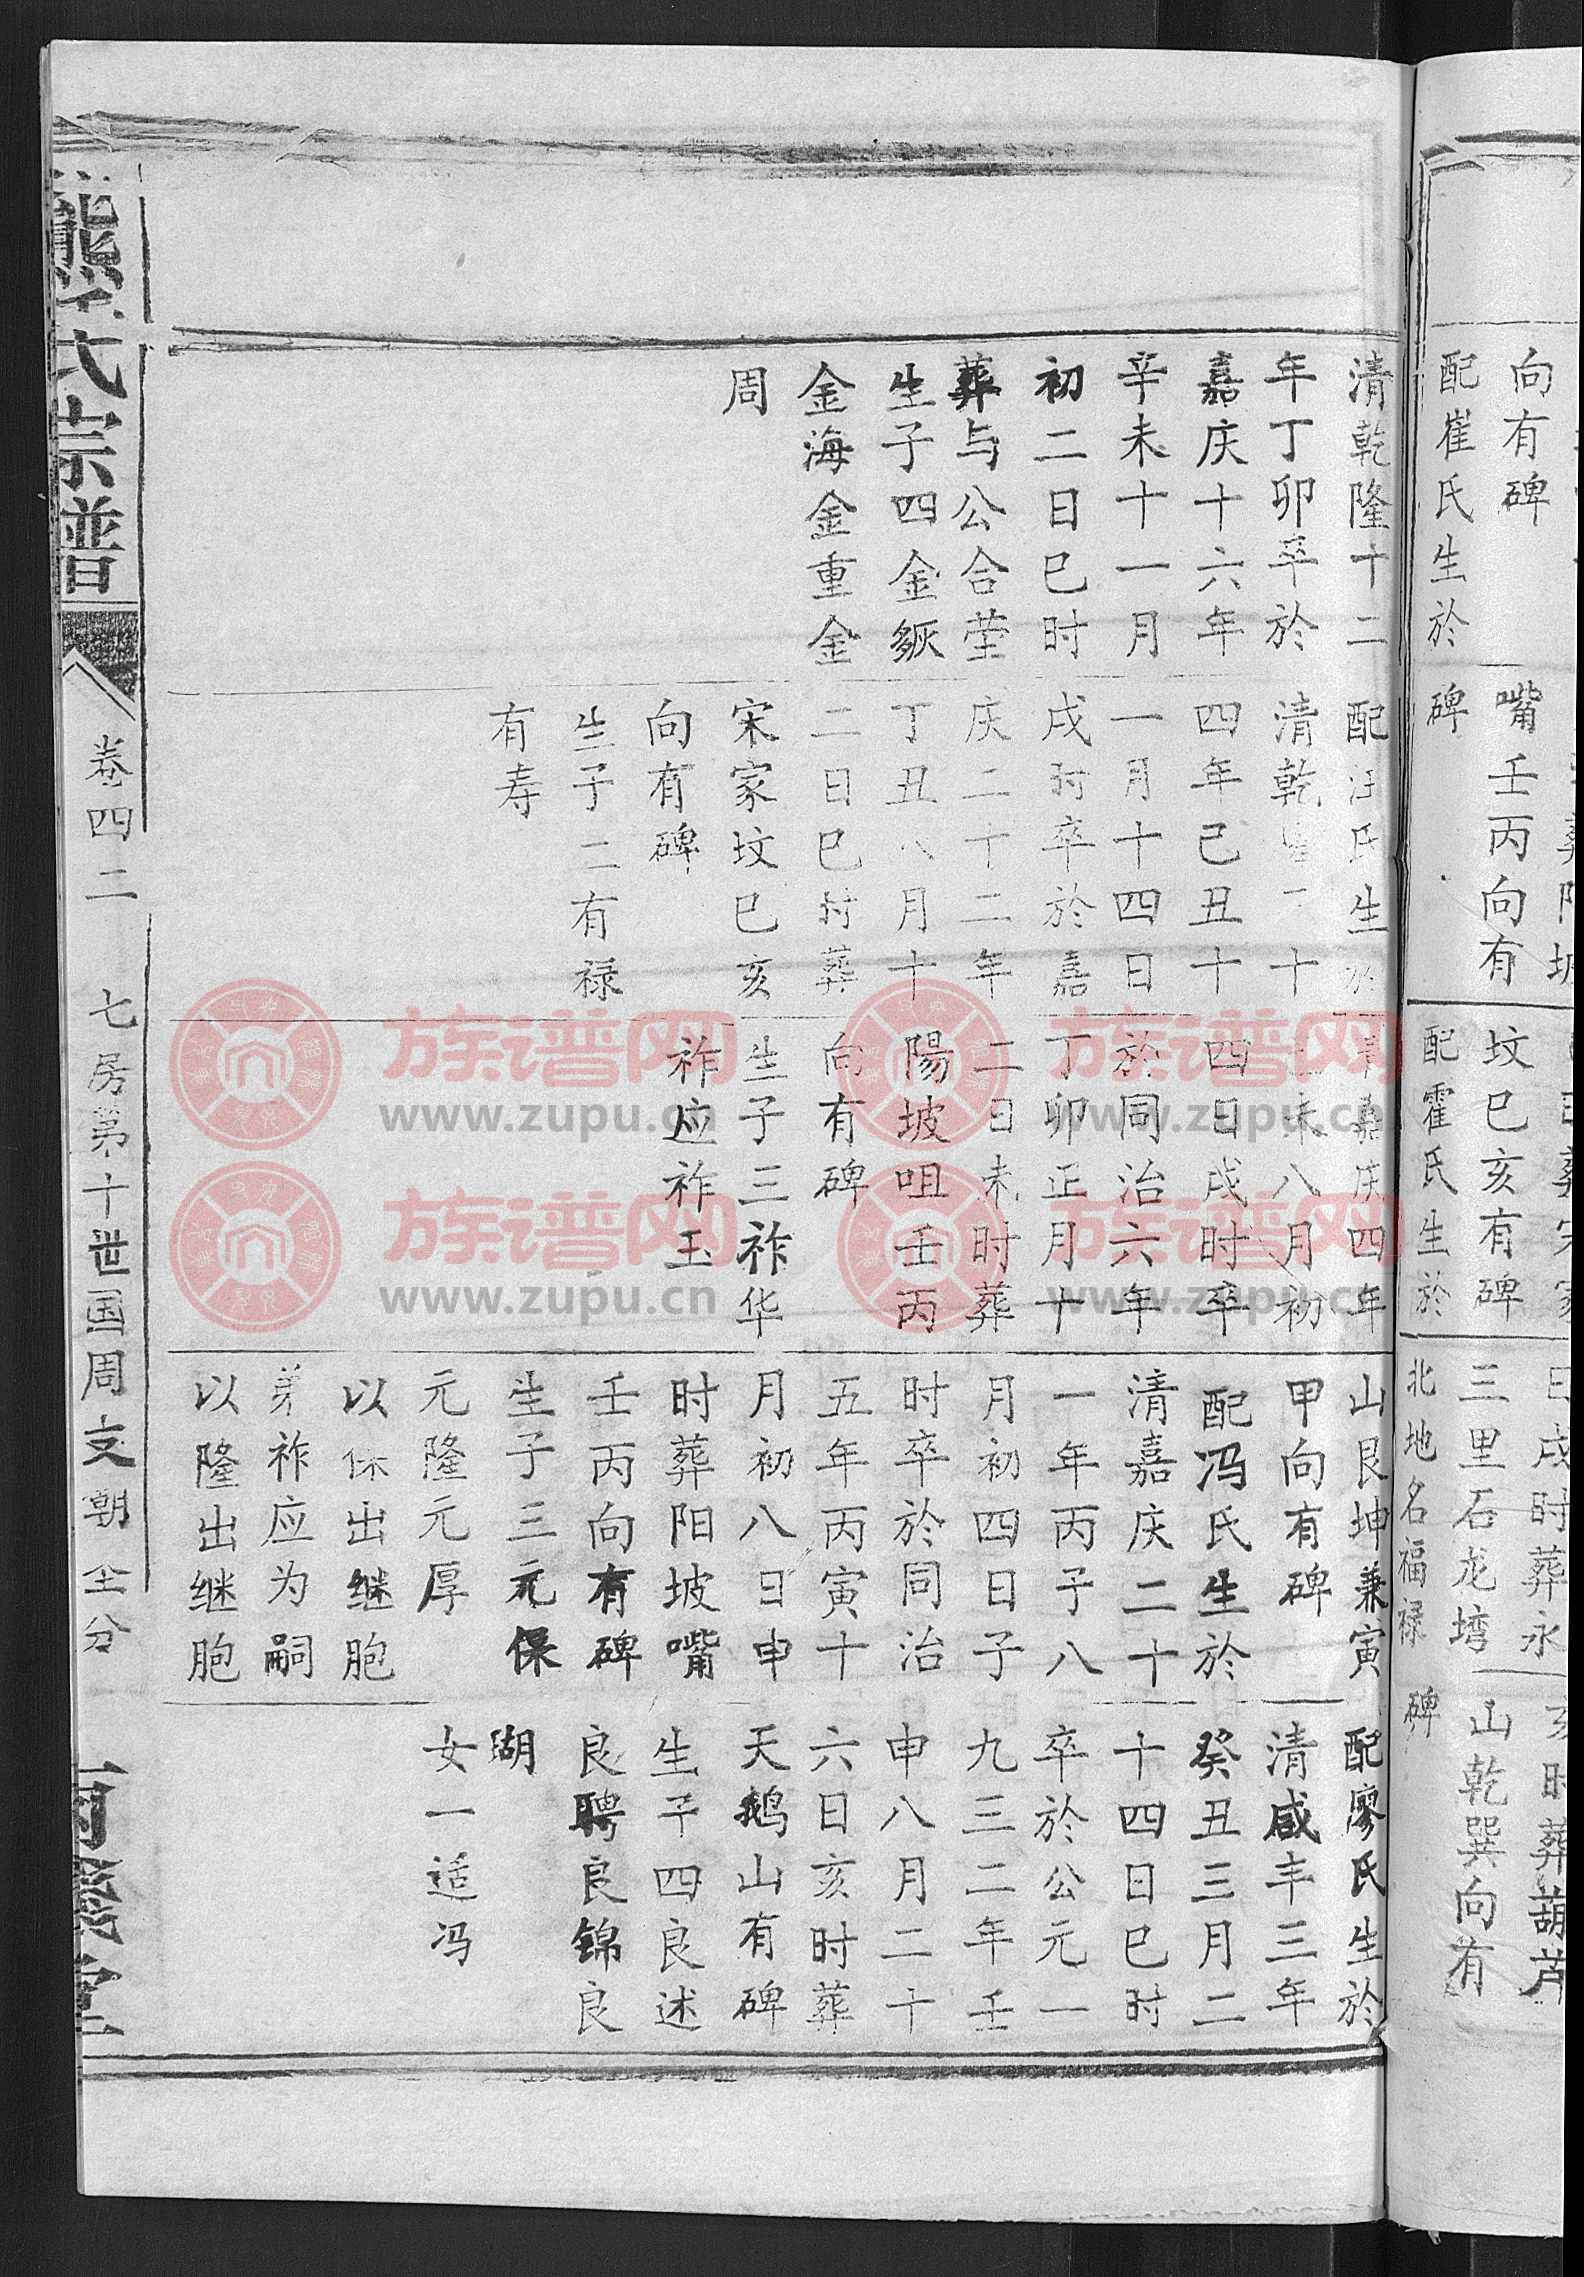 向有碑
配崔氏生於
嘴壬丙向有
碑
坟巳亥有碑
配霍氏生於
日戌时葬永
三里石龙塆
北地名福禄
亥时葬葫芦
山乾巽向有
碑
清乾隆十二
年丁卯卒於
嘉庆十六年
辛未十一月
初二日巳时
葬与公合茔
生子四金
金海金重金
周
配汪氏生
清乾 十
四年己丑十
一月十四日
戌时卒於嘉
庆二十二年
丁丑八月十
二日巳时葬
宋家坟巳亥
向有碑
生子二有禄
有寿
清嘉庆四年
己未八月初
四日戌时卒
於同治六年
丁卯正月十
二日未时葬
陽坡咀壬丙
向有碑
生子三祚华
祚应祚玉
山艮坤兼寅
甲向有碑
配冯氏生於
清嘉庆二十
一年丙子八
月初四日子
时卒於同治
五年丙寅十
月初八日申
时葬阳坡嘴
壬丙向有碑
生子三元保
元隆元厚
以保出继胞
弟祚应为嗣
以隆出继胞
配廖氏生於
清咸丰三年
癸丑三月二
十四日巳时
卒於公元一
九三二年壬
申八月二十
六日亥时葬
天鹅山有碑
生子四良述
良聘良锦良
瑚
女一适冯
熊氏宗谱
卷四二
七房第十世国周支朝 分
族谱网
www.zupu.cn
族谱网
www.zupu.cn
族谱网
www.zupu.cn
族谱网
www.zupu.cn